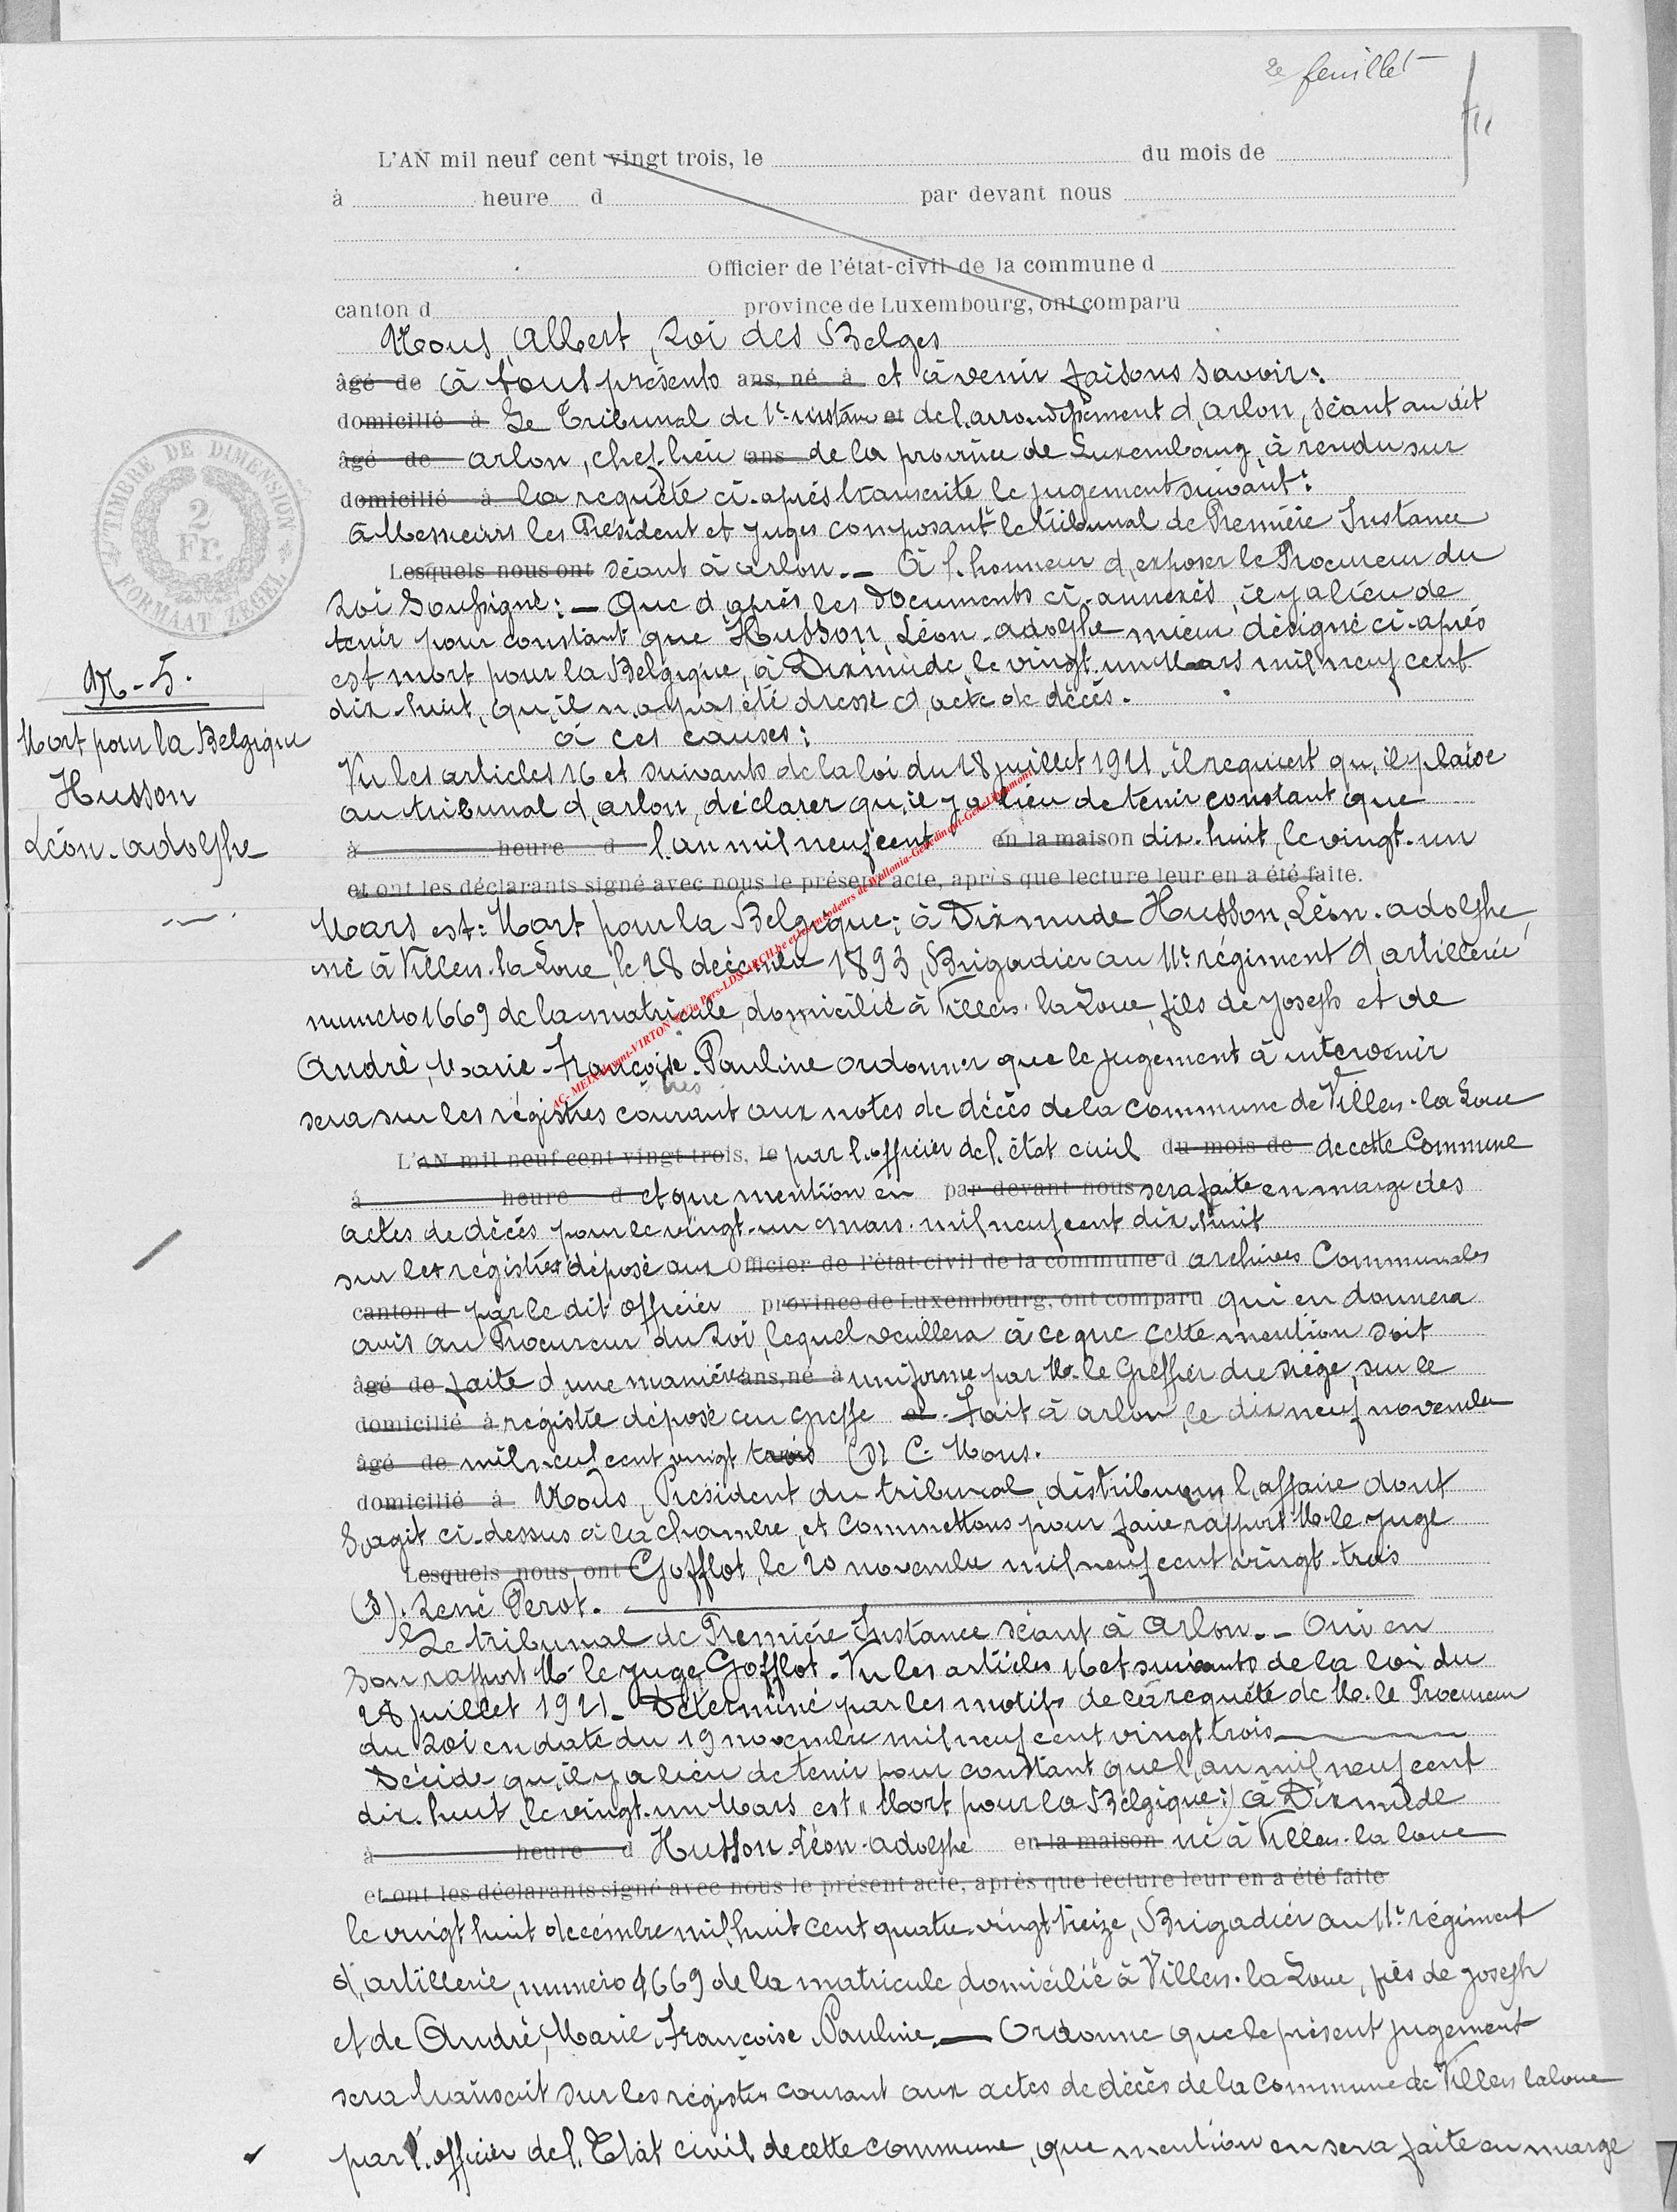 2e feuillet
L'AN mil neuf cent vingt trois, le du mois de
à heure d par devant nous
Officier de l'état-civil de la commune d
canton d province de Luxembourg, ont comparu
Nous, Albert, Roi des Belges
âgé de à tous présents ans, né à et à venir faisons savoir:
domicilié à Le Tribunal de 1re instance et de l'arrondissement d'arlon, séant au dit
âgé de arlon, chef-lieu ans de la province de Luxembourg, à rendu sur
domicilié à la requête ci-après transcrite le jugement suivant:
à Messieurs les Président et Juges composant le tribunal de Première Instance
Lesquels nous ont séant à arlon. _ A l'honneur d'exposer le Procureur du
Roi soussigné: _ Que d'après les documents ci-annexés, il y a lieu de
tenir pour constant que Husson, Léon-adolphe mieux désigné ci-après
est mort pour la Belgique, à Dixmude, le vingt-un Mars mil neuf cent
dix-huit, qu'il n'a pas été dressé d'acte de décès.
à ces causes:
Vu les articles 16 et suivants de la loi du 28 juillet 1921, il requiert qu'il plaise
au tribunal d'arlon, déclarer qu'il y a lieu de tenir constant que
à heure d l'an mil neuf cent en la maison dix-huit, le vingt-un
et ont les déclarants signé avec nous le présent acte, après que lecture leur en a été faite.
Mars est: Mort pour la Belgique; à Dixmude Husson, Léon-adolphe,
né à Villers-la-Loue, le 28 décembre 1893, Brigadier au 11e régiment d'artillerie
numéro 1669 de la matricule, domicilié à Villers-la-Loue, fils de Joseph et de
André, Marie-Françoise-Pauline ordonner que le jugement à intervenir
sera sur les régistres courant aux notes de décès de la commune de Villers-la-Loue
L'AN mil neuf cent vingt trois, le par l'officier de l'état civil du mois de de cette Commune
à heure d et que mention en par devant nous sera faite en marge des
actes de décès pour le vingt-un mars mil neuf cent dix-huit
sur les régistres déposé aux Officier de l'état-civil de la commune d archives Communales
canton d par le dit officier province de Luxembourg, ont comparu qui en donnera
avis au Procureur du Roi, lequel veillera à ce que cette mention soit
âgé de faite d'une manière ans, né à uniforme par M. le Greffier du siège, sur le
domicilié à régistre déposé au greffe et Fait à arlon, le dix neuf novembre
âgé de mil neuf cent vingt trois (s) C. Mons.
domicilié à Nous, Président du tribunal, distribuons l'affaire dont
s'agit ci-dessus à la chambre, et commettons pour faire rapport M. le Juge
Lesquels nous ont Gofflot, le 20 novembre mil neuf cent vingt-trois
(s). René Perot.
Le tribunal de Première Instance séant à Arlon. _ Oui en
son rapport M. le Juge Gofflot. Vu les articles 16 et suivants de la loi du
28 juillet 1921_ Déterminé par les motifs de la requête de M. le Procureur
du Roi en date du 19 novembre mil neuf cent vingt trois
Décide qu'il y a lieu de tenir pour constant que l'an mil neuf cent
dix-huit, le vingt-un Mars est "Mort pour la Belgique:) à Dixmude
à heure d Husson-Léon-adolphe en la maison né à Villers-la loue
et ont les déclarants signé avec nous le présent acte, après que lecture leur en a été faite
le vingt huit décembre mil huit cent quatre-vingt treize, Brigadier au 11e régiment
d'artillerie, numéro 1669 de la matricule, domicilié à Villers-la-Loue, fils de Joseph
et de André, Marie, Françoise, Pauline. _ Ordonne que le présent jugement
sera transcrit sur les régistres courant aux actes de décès de la commune de Villers la loue
par l'officier de l'Etat civil de cette commune, que mention en sera faite en marge
TIMBRE DE DIMENSION
2
Fr.
FORMAAT ZEGEL
N-5.
Mort pour la Belgique
Husson
Léon-adolphe